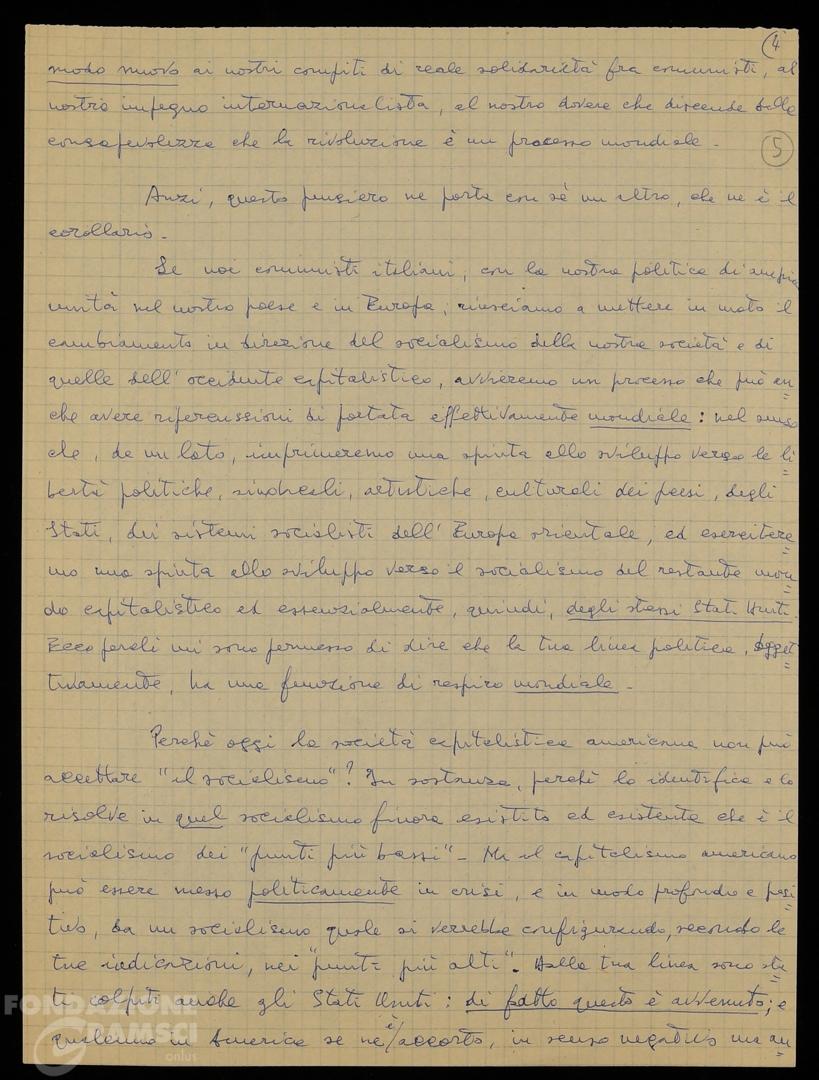 4
modo nuovo ai nostri compiti di reale solidarietà fra comunisti, al
nostro impegno internazionalista, al nostro dovere che discende dalla
consapevolezza che la rivoluzione è un processo mondiale.
5
Anzi, questo pensiero ne porta con sè un altro, che ne è il
corollario.
Se noi comunisti italiani, con la nostra politica di ampia
unità nel nostro paese e in Europa, riusciamo a mettere in moto il
cambiamento in direzione del socialismo della nostra società e di
quelle dell'occidente capitalistico, avvieremo un processo che può an=
che avere ripercussioni di portata effettivamente mondiale: nel senso
che, da un lato, imprimeremo una spinta allo sviluppo verso le li=
bertà politiche, sindacali, artistiche, culturali dei paesi, degli
Stati, dei sistemi socialisti dell'Europa orientale, ed esercitere=
mo una spinta allo sviluppo verso il socialismo del restante mon=
do capitalistico ed essenzialmente, quindi, degli stessi Stati Uniti.
Ecco perchè mi sono permesso di dire che la tua linea politica, oggget=
tivamente, ha una funzione di respiro mondiale.
Perchè oggi la società capitalistica americana non può
accettare "il socialismo"? In sostanza, perchè lo identifica e lo
risolve in quel socialismo finora esistito ed esistente che è il
socialismo dei "punti più bassi". Ma il capitalismo americano
può essere messo politicamente in crisi, e in modo profondo e posi=
tivo, da un socialismo quale si verrebbe configurando, secondo le
tue indicazioni, nei "punti più alti". Dalla tua linea sono sta=
ti colpiti anche gli Stati Uniti: di fatto questo è avvenuto; e
qualcuno in America se ne è accorto, in senso negativo ma an=
FONDAZIONE
GRAMSCI
onlus